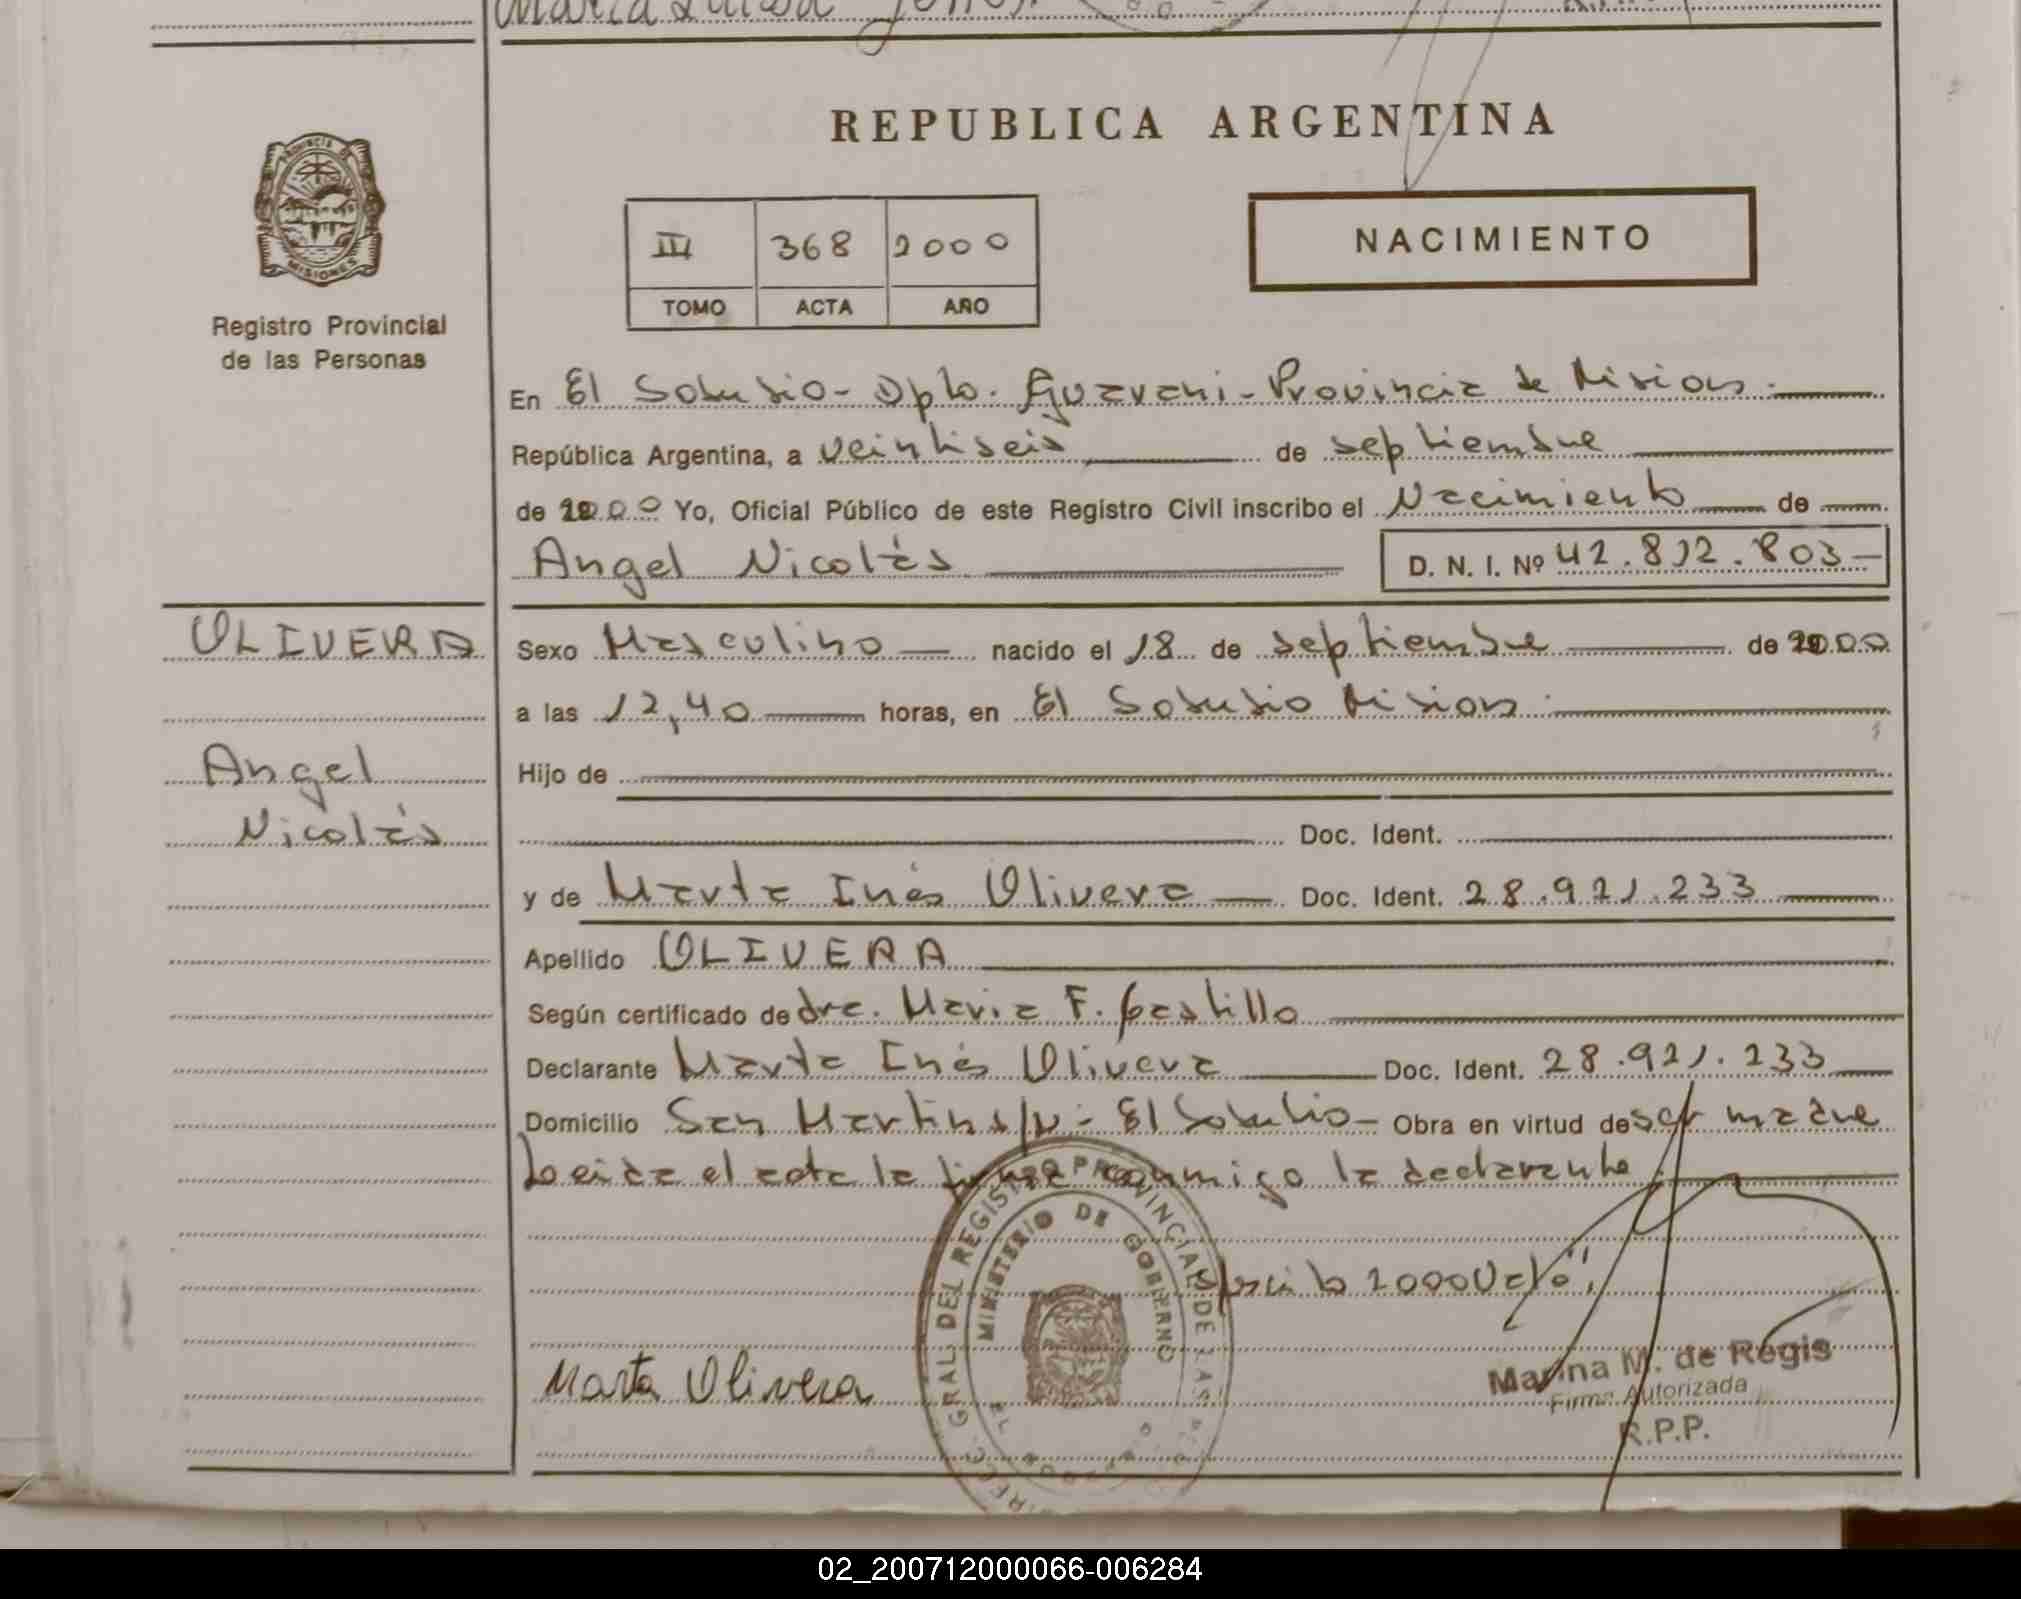 Maria Luisa
REPUBLICA ARGENTINA
PROVINCIA DE
MISIONES
III 368 2000
TOMO ACTA AÑO
NACIMIENTO
Registro Provincial
de las Personas
En El Soberbio - Dpto. Guarani - Provincia de Misiones.
República Argentina, a veintiseis de septiembre
de 2000 Yo, Oficial Público de este Registro Civil inscribo el Nacimiento de
Angel Nicolás D. N. I. Nº 42.812.803
OLIVERA
Angel
Nicolás
Sexo Masculino nacido el 18 de septiembre de 2000
a las 12,40 horas, en El Soberbio Misiones.
Hijo de
Doc. Ident.
y de Marta Inés Olivera Doc. Ident. 28.921.233
Apellido OLIVERA
Según certificado de dra. Maria F. Castillo
Declarante Marta Inés Olivera Doc. Ident. 28.921.233
Domicilio San Martin s/n - El Soberbio - Obra en virtud de ser madre
Leida el acta la firma conmigo la declarante.
2000 Vale".
DIREC. GRAL DEL REGISTRO PROVINCIAL DE LAS
MINISTERIO DE GOBIERNO
EL
Marta Olivera
Marina M. de Regis
Firma Autorizada
R.P.P.
02_200712000066-006284